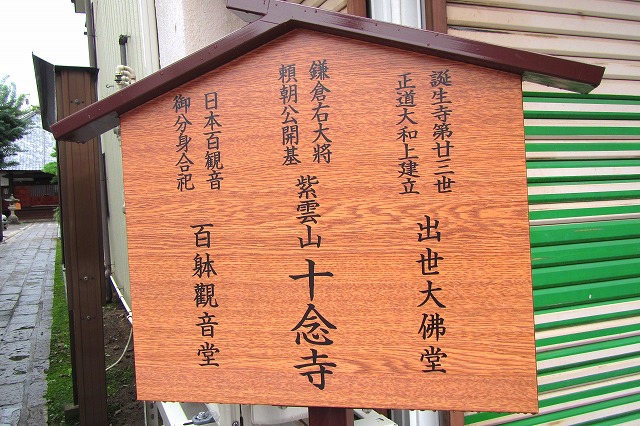 誕生寺第廿三世
正道大和上建立
出世大佛堂
鎌倉右大将
頼朝公開基
紫雲山 十念寺
日本百観音
御分身合祀
百躰觀音堂